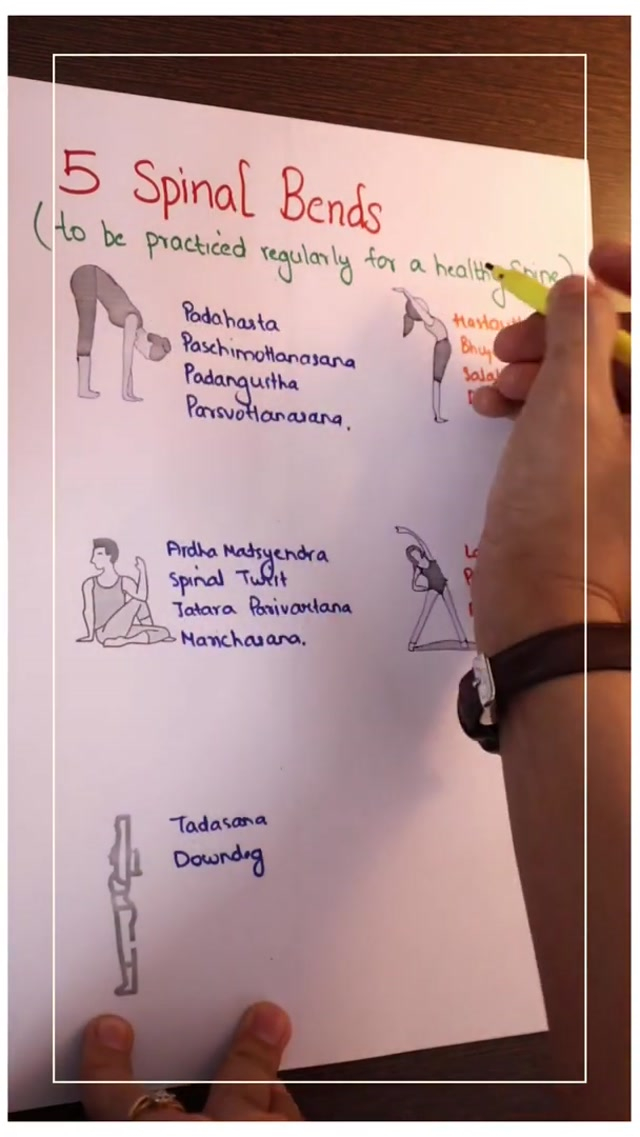 5 Spinal Bends
(to be practiced regularly for a healthy Spine)
Padahasta
Paschimottanasana
Padangustha
Parsvottanasana.
Ardha Matsyendra
Spinal Twist
Jatara Parivartana
Marichasana.
Tadasana
Downdog